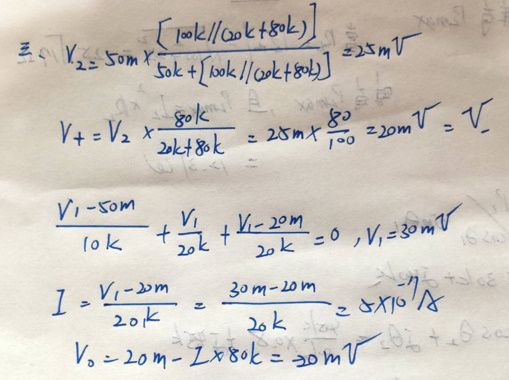 三、V₂=50m×[100k//(20k+80k)]/50k+[100k//(20k+80k)]=25mV
V₊=V₂×80k/20k+80k=25m×80/100=20mV=V₋
V₁-50m/10k+V₁/20k+V₁-20m/20k=0,V₁=30mV
I=V₁-20m/20k=30m-20m/20k=5×10⁻⁷A
V₀=20m-I×80k=-20mV